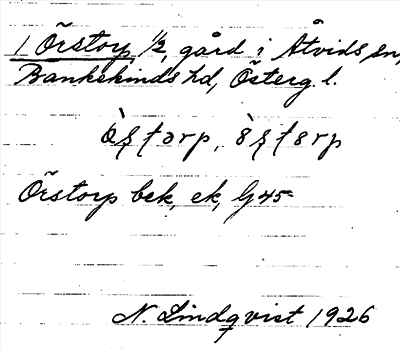 1 Örstorp, 1/2, gård i Åtvids sn,
Bankekinds hd, Österg. l.
Örstorp bek, ek, G 45
N. Lindqvist 1926